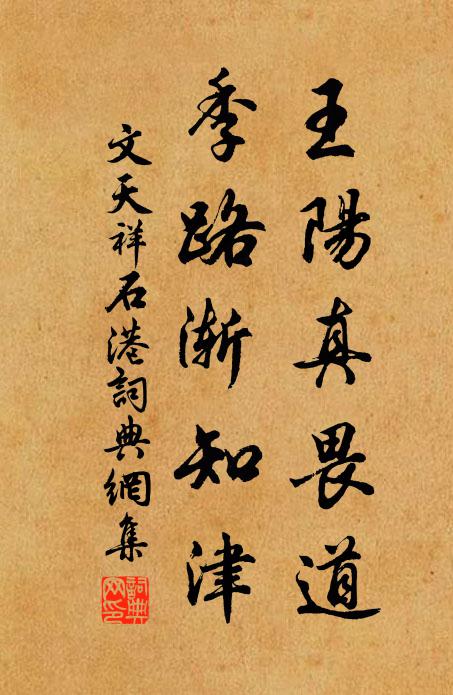 王陽真畏道
季路漸知津
文天祥石港詞典網集
詞典網印